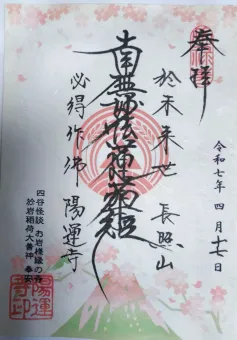 奉拝
令和七年四月十七日
於未来世 長照山
南無妙法蓮華経
必得作佛 陽運寺
四谷怪談 お岩様縁の寺
於岩稲荷大善神 奉安
陽運寺印